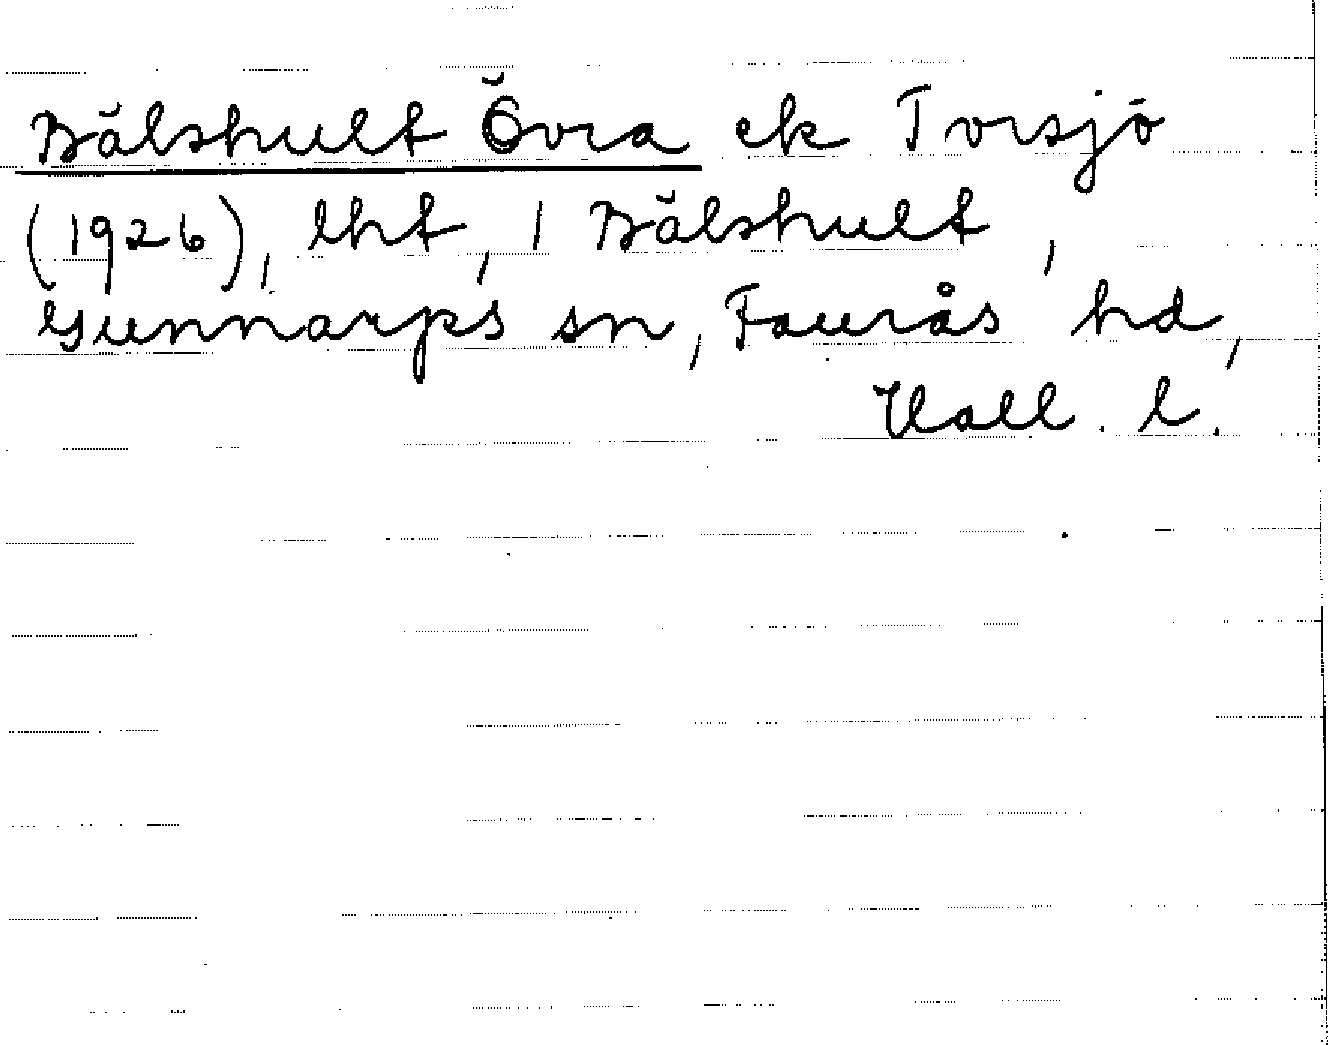 Bälshult Övra ek Torsjö
(1926), lht, 1 Bälshult,
Gunnarps sn, Faurås hd,
Hall. l.